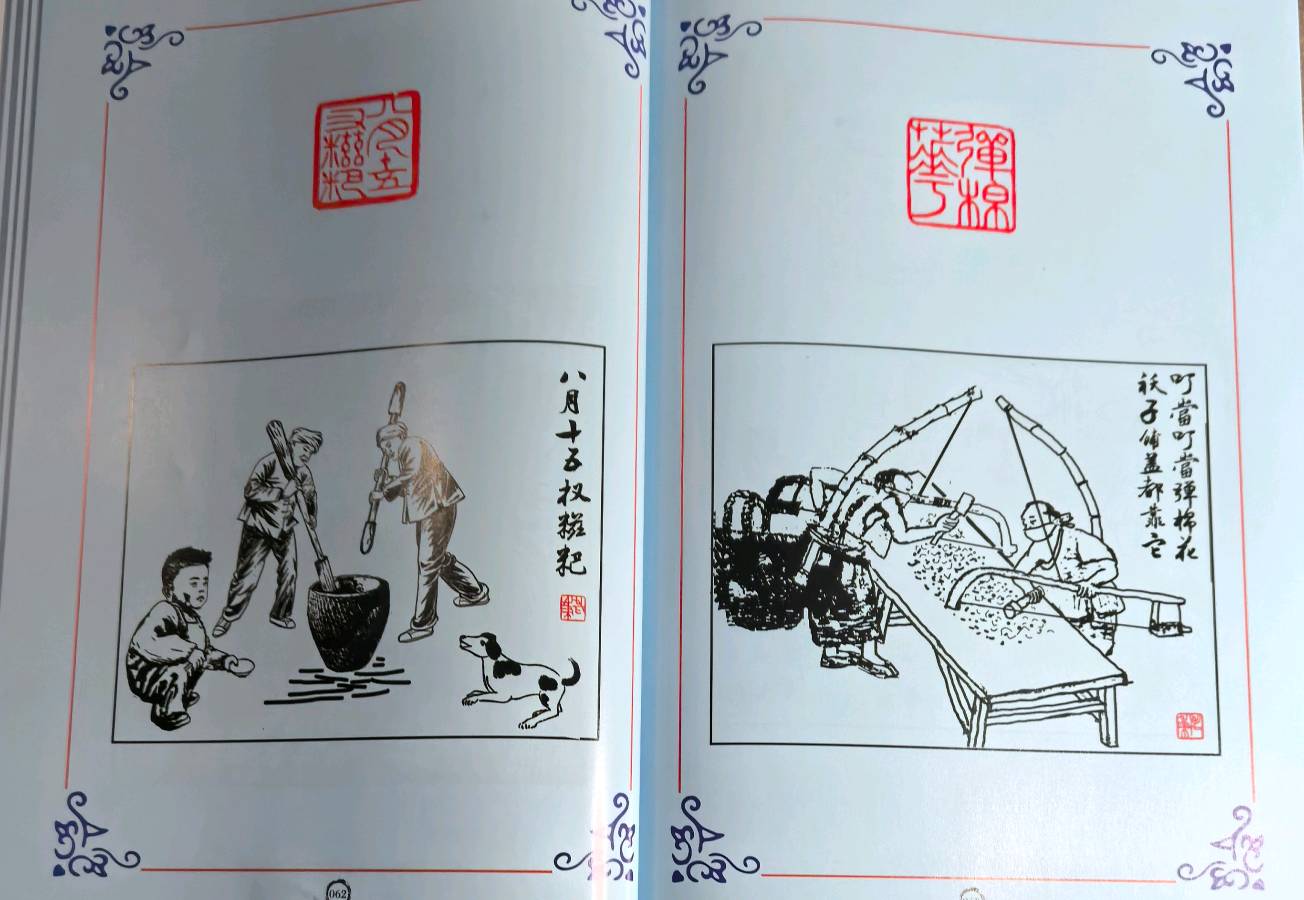 八月十五
叉糍粑
八月十五扠糍粑
062
彈棉
華
叮當叮當彈棉花
袄子鋪盖都靠它